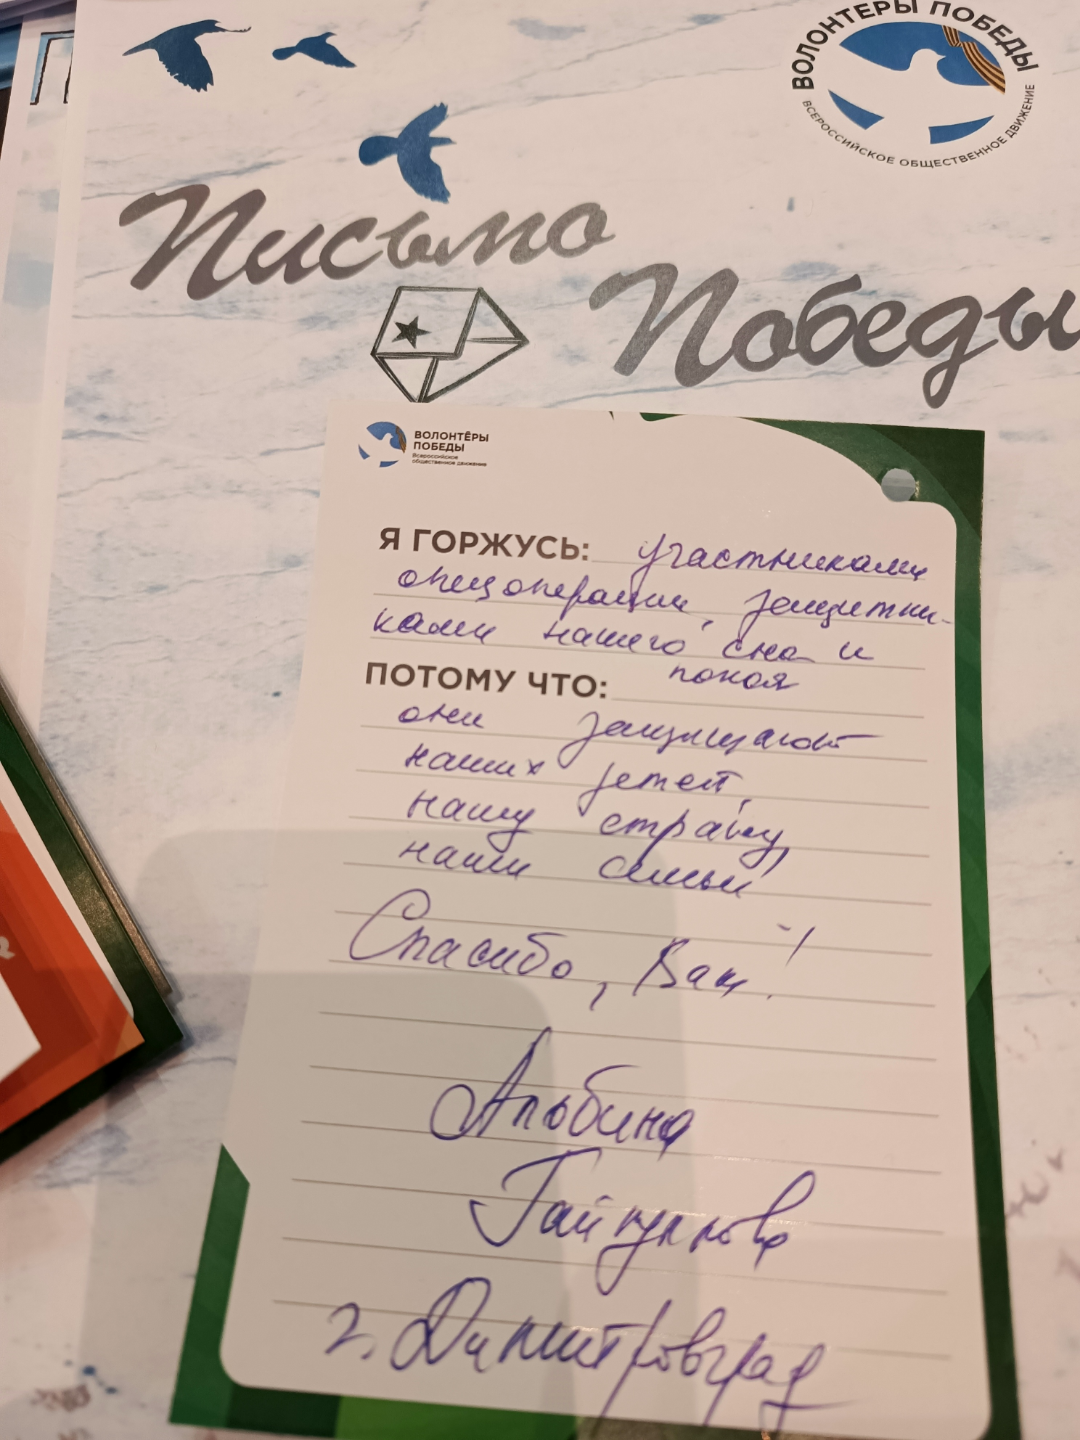 ВОЛОНТЕРЫ ПОБЕДЫ
ВСЕРОССИЙСКОЕ ОБЩЕСТВЕННОЕ ДВИЖЕНИЕ
Письмо
Победы
ВОЛОНТЁРЫ
ПОБЕДЫ
Всероссийское
общественное движение
Я ГОРЖУСЬ: участниками
спецоперации, защитни-
ками нашего сна и
покоя
ПОТОМУ ЧТО:
они защищают
наших детей,
нашу страну,
наши семьи
Спасибо, Вам!
Альбина
г. Димитровград